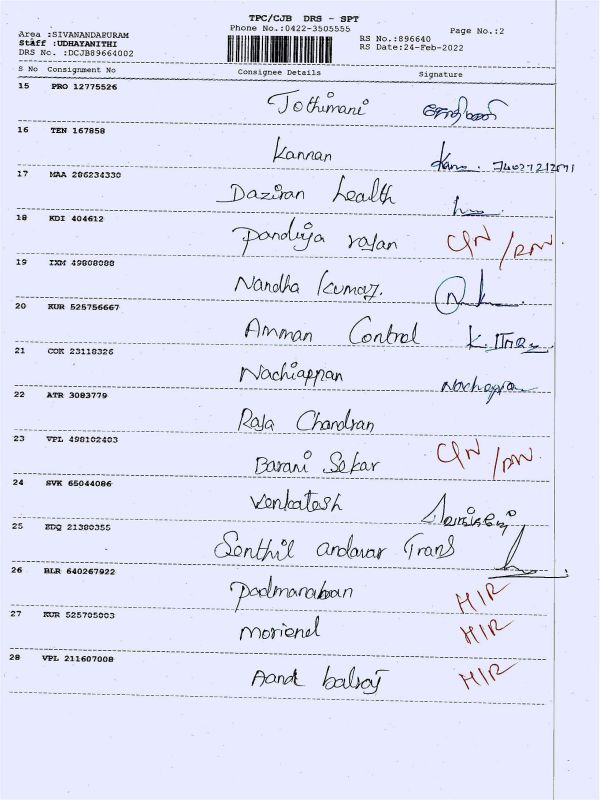 TPC/CJB DRS - SPT
Phone No.:0422-3505555
Page No.:2
Area :SIVANANDAPURAM
Staff :UDHAYANITHI
DRS No. :DCJB89664002
RS No.:896640
RS Date:24-Feb-2022
S No Consignment No Consignee Details Signature
15 PRO 12775526 Jothimani
16 TEN 167858 Kannan
17 MAA 286234330 Daziran health
18 KDI 404612 Pandiya rajan C/N /
19 IXM 49808088 Nandha Kumar.
20 KUR 525756667 Amman Control
21 COK 23118326 Nachiappan Nachappan
22 ATR 3083779 Raja Chandran
23 VPL 498102403 Barani Sekar C/N /
24 SVK 65044086 Venkatesh
25 EDQ 21380355 Senthil andavar Trans
26 BLR 640267922 Padmanaban HIR
27 KUR 525705003 HIR
28 VPL 211607008 HIR